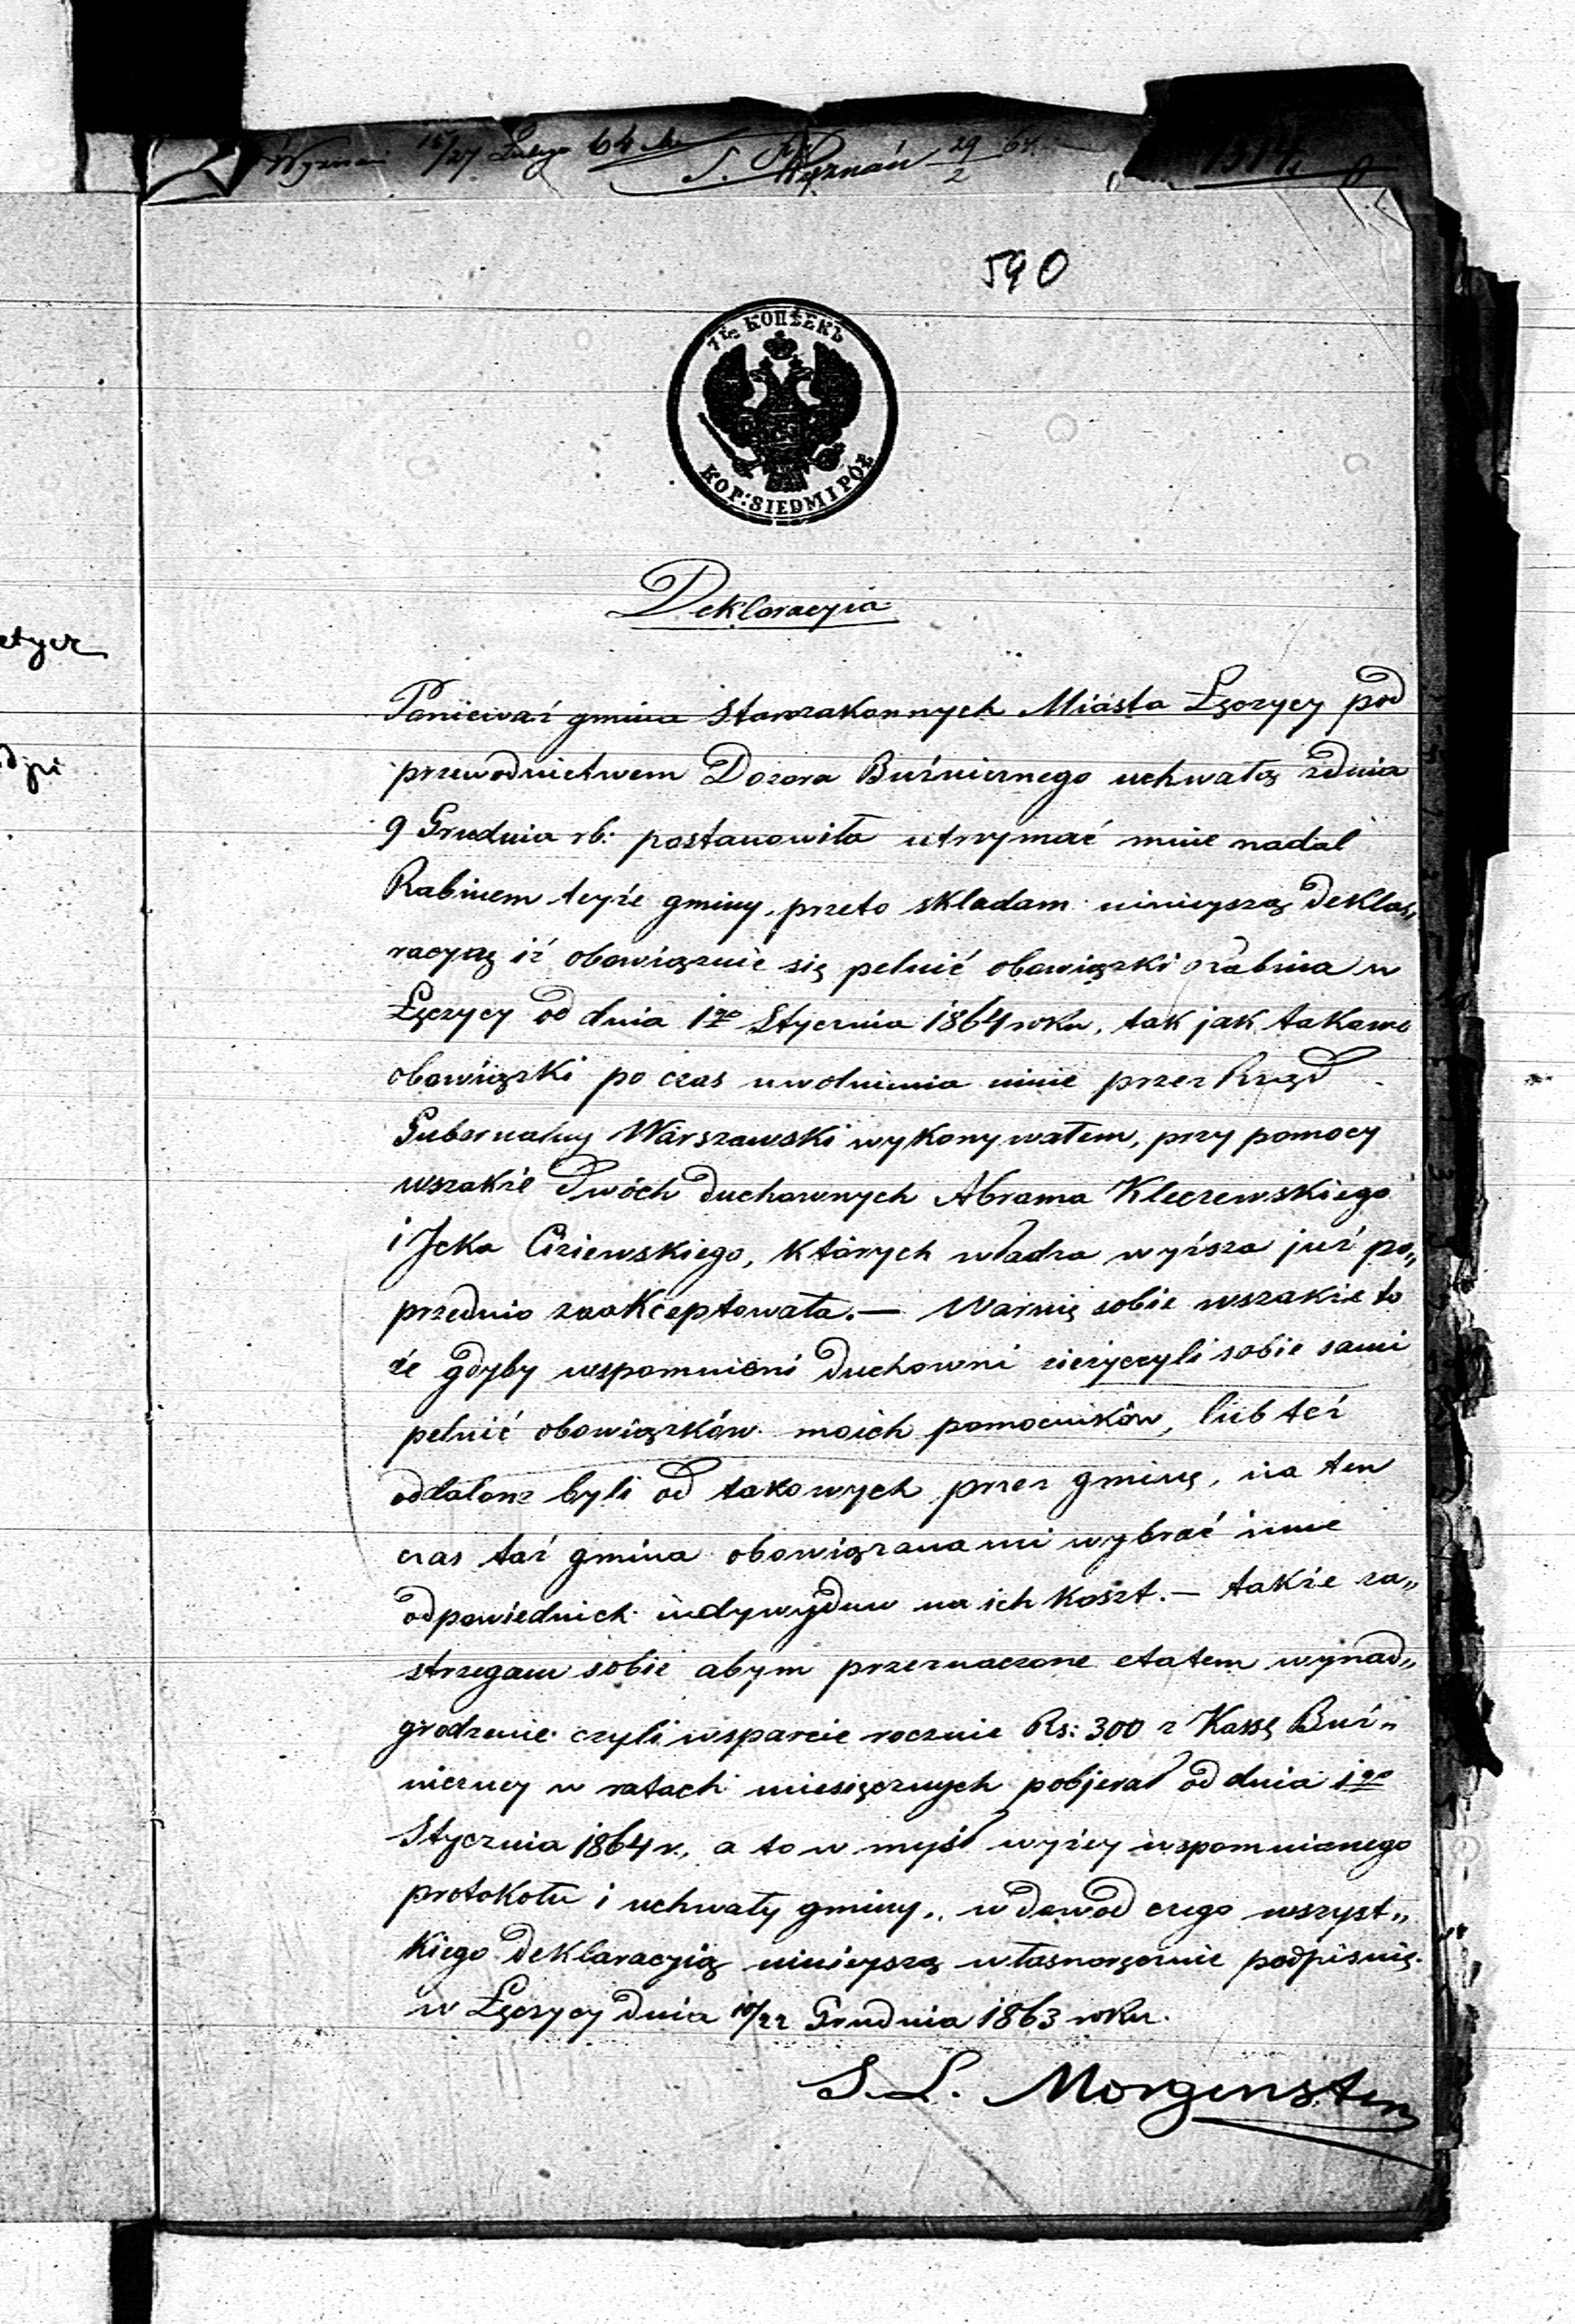 15/27 Lutego 64
29/2 64
1314
590
7½ КОПѢЕКЪ
KOP: SIEDM I PÓŁ
Deklaracyia
etycz
dzi
Poniewaź gmina Starozakonnych Miasta Łęczycy pod
przewodnictwem Dozoru Buźnicznego uchwałą zdnia
9 Grudnia rb: postanowiła utrzymać mnie nadal
Rabinem teyźe gminy, przeto składam ninieyszą Dekla„
racyią iź obowiązuie się pełnić obowiązki Rabina w
Łęczycy od dnia 1go Stycznia 1864 roku, tak jak takowe
obowiązki po czas uwolnienia mnie przez Rząd
Gubernialny Warszawski wykonywałem, przy pomocy
wszakźe Dwóch Duchownych Abrama Kleczewskiego
i Jcka Ciźewskiego, których władza wyźsza juź po„
przednio zaakceptowała.— Waruię sobie wszakźe to
źe gdyby wspomnieni Duchowni nieźyczyli sobie sami
pełnić obowiązków moich pomocników, lub teź
oddalone byli od takowych przez gminę, na ten
czas taź gmina obowiązana mi wybrać inne
odpowiednich indywyduw na ich koszt.— takźe za„
strzegam sobie abym przeznaczone etatem wynad„
grodzenie czyli wsparcie rocznie Rs: 300 z Kassę Buź„
niczney w ratach miesięcznych pobjerał od dnia 1go
Stycznia 1864 r., a to w myśl wyźey wspomnianego
protokołu i uchwały gminy,. w dowod czego wszyst„
kiego deklaracyią ninieyszą własnoręcznie podpisuię.
w Łęczycy dnia 10/22 Grudnia 1863 roku.
S. L. Morgenstern